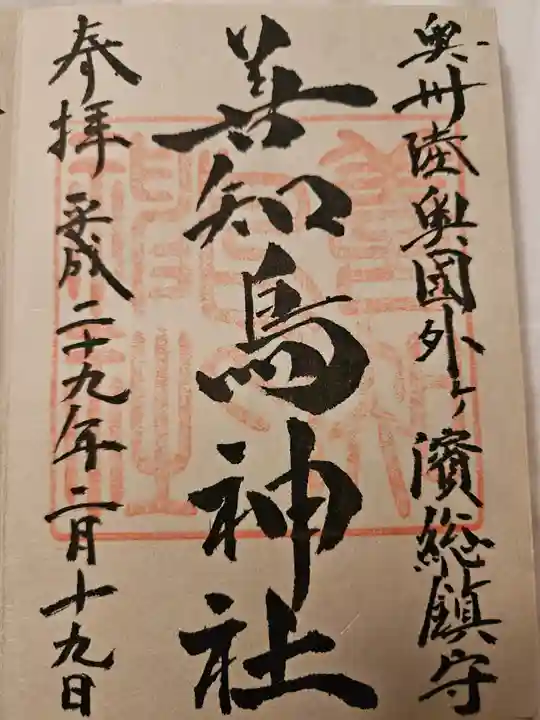 奥州陸奥國外ヶ濱総鎮守
善知鳥神社
奉拝 平成二十九年二月十九日